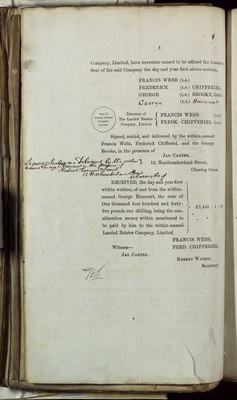 Company, Limited, have hereunto caused to be affixed the Common
Seal of the said Company the day and year first above-written.
FRANCIS WEBB (L.S.)
FREDERICK (L.S.) CHIFFERIEL
GEORGE (L.S.) BROOKE, Gent.
George (L.S.) Harcourt
Directors of
The Landed Estates
Company, Limited
FRANCIS WEBB (L.S.)
FREDK. CHIFFERIEL (L.S.)
Signed, sealed, and delivered by the within-named
Francis Webb, Frederick Chifferiel, and
George
Brooke, in the presence of
JAS. CARTER,
13, Northumberland Street,
Charing Cross
RECEIVED, the day and year first
within written, of and from the within-
named George Harcourt, the sum of
One thousand four hundred and forty-
five pounds one shilling, being the con-
sideration money within mentioned to
be paid by him to the within-named
Landed Estates Company, Limited
£1,445 : 1
FRANCIS WEBB,
FRED. CHIFFERIEL
Witness—
JAS. CARTER.
ROBERT
Secretary